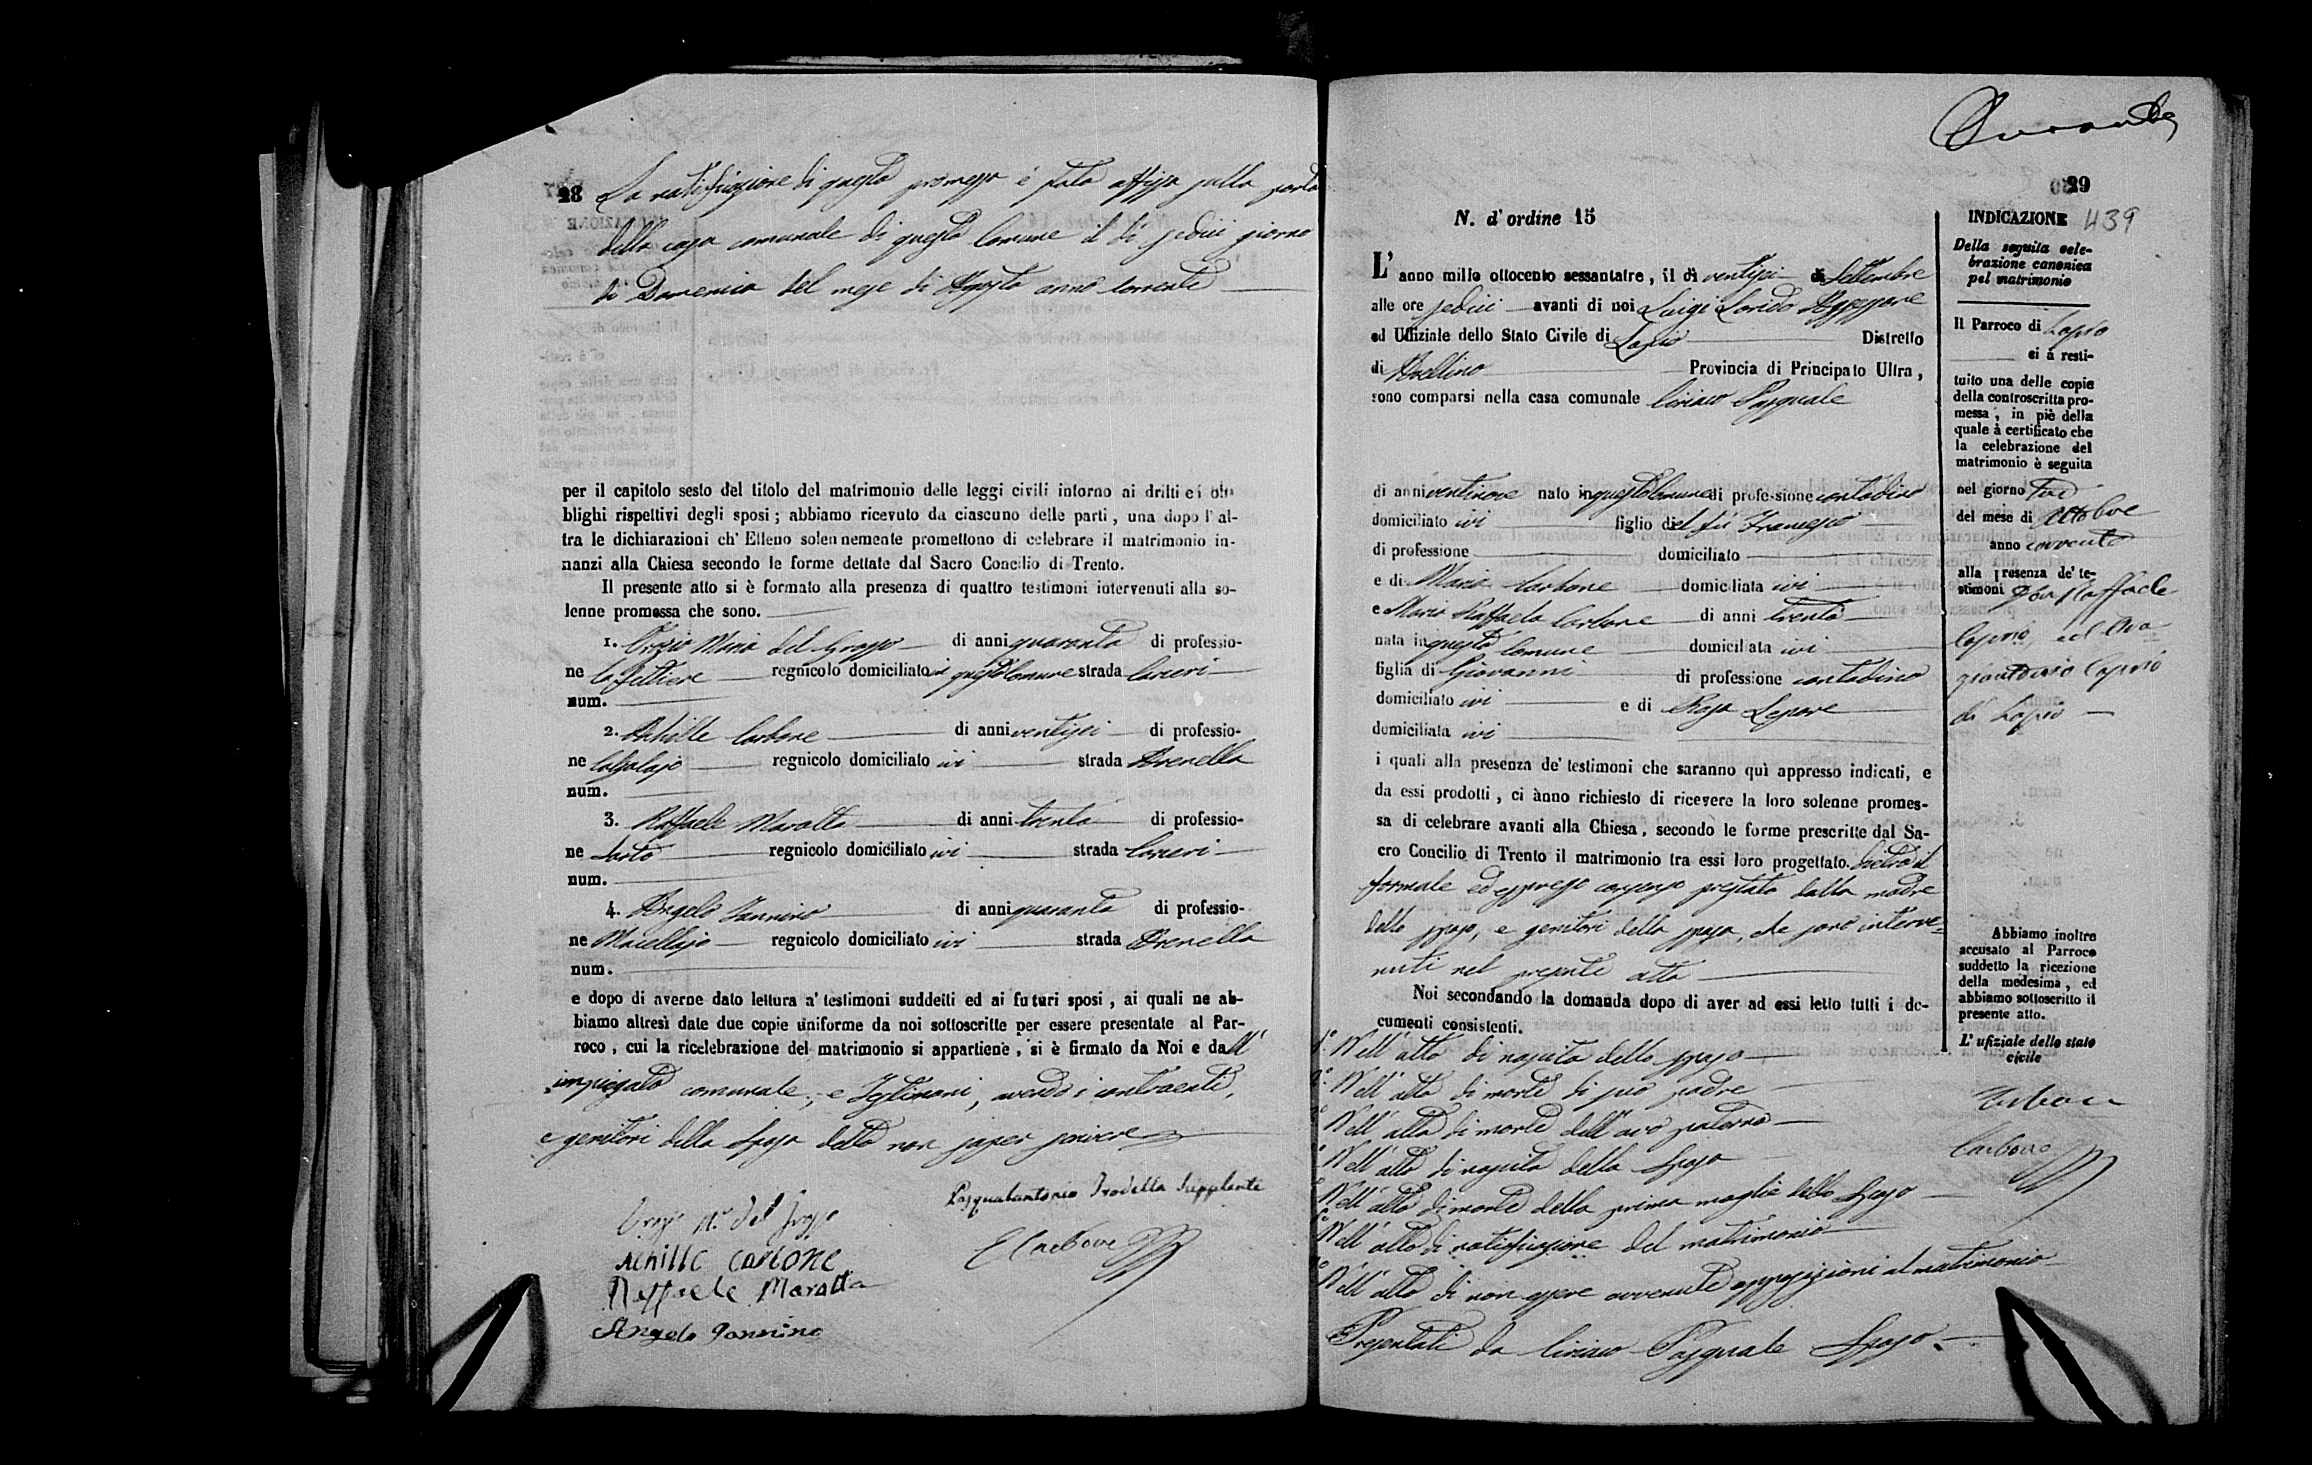 28 La notificazione di questa promessa è stata affissa sulla porta
della casa comunale di questo Comune il dì sedici giorno
di Domenica del mese di Agosto anno corrente
per il capitolo sesto del titolo del matrimonio delle leggi civili intorno ai dritti ei ob-
blighi rispettivi degli sposi; abbiamo ricevuto da ciascuno delle parti, una dopo l'al-
tra le dichiarazioni ch' Elleno solennemente promettono di celebrare il matrimonio in-
nanzi alla Chiesa secondo le forme dettate dal Sacro Concilio di Trento.
Il presente atto si è formato alla presenza di quattro testimoni intervenuti alla so-
lenne promessa che sono.
1. Orazio Maria del Grosso di anni quaranta di professio-
ne Caffettiere regnicolo domiciliato in questo Comune strada Carceri
num.
2. Achille Carbone di anni ventisei di professio-
ne Calzolajo regnicolo domiciliato ivi strada Arenella
num.
3. Raffaele Maratta di anni trenta di professio-
ne Sarto regnicolo domiciliato ivi strada Carceri
num.
4. Angelo Iannino di anni quaranta di professio-
ne Macellajo regnicolo domiciliato ivi strada Arenella
num.
e dopo di averne dato lettura a' testimoni suddetti ed ai futuri sposi, ai quali ne ab-
biamo altresì date due copie uniforme da noi sottoscritte per essere presentate al Par-
roco, cui la ricelebrazione del matrimonio si appartiene, si è firmato da Noi e dall'
impiegato comunale, e Testimoni, avendo i contraenti,
e genitori della Sposa detto non saper scrivere
Pasqualantonio Trodella Supplente
Orazio M.a del Grosso
Achille Carbone
E Carbone
Raffaele Maratta
Angelo Iannino
29
439
N. d'ordine 15
L' anno mille ottocento sessantatre, il dì ventisei di Settembre
alle ore sedici avanti di noi Luigi Assessore
ed Uffiziale dello Stato Civile di Lapio Distretto
di Avellino Provincia di Principato Ultra,
sono comparsi nella casa comunale Ciriaco Pasquale
di anni ventinove nato in questo Comune di professione contadino
domiciliato ivi figlio del fù Francesco
di professione domiciliato
e di Maria Carbone domiciliata ivi
e Maria Raffaela Carbone di anni trenta
nata in questo Comune domiciliata ivi
figlia di Giovanni di professione contadino
domiciliato ivi e di Rosa Lepore
domiciliata ivi
i quali alla presenza de' testimoni che saranno quì appresso indicati, e
da essi prodotti, ci ànno richiesto di ricevere la loro solenne promes-
sa di celebrare avanti alla Chiesa, secondo le forme prescritte dal Sa-
cro Concilio di Trento il matrimonio tra essi loro progettato. Dietro il
formale ed espresso consenso prestato dalla madre
dello sposo, e genitori della sposa, che sono interve=
nuti nel presente atto
Noi secondando la domanda dopo di aver ad essi letto tutti i do-
cumenti consistenti.
1.° Nell' atto di nascita dello sposo
Nell' atto di morte di suo padre
Nell' atto di morte dell'avo paterno
Nell' atto di nascita della Sposa
Nell' atto di morte della prima moglie dello Sposo
Nell' atto di notificazione del matrimonio
Nell' atto di non essere avvenute opposizioni al matrimonio
Presentati da Ciriaco Pasquale Sposo.
INDICAZIONE
Della seguita cele-
brazione canonica
pel matrimonio
Il Parroco di Lapio
ci à resti-
tuito una delle copie
della controscritta pro-
messa, in piè della
quale à certificato che
la celebrazione del
matrimonio è seguita
nel giorno Tre
del mese di Ottobre
anno corrente
alla presenza de' te-
stimoni Don Raffaele
Caprio, ed
Caprio
di Lapio
Abbiamo inoltre
accusato al Parroco
suddetto la ricezione
della medesima, ed
abbiamo sottoscritto il
presente atto.
L' ufiziale dello stato
civile
Carbone